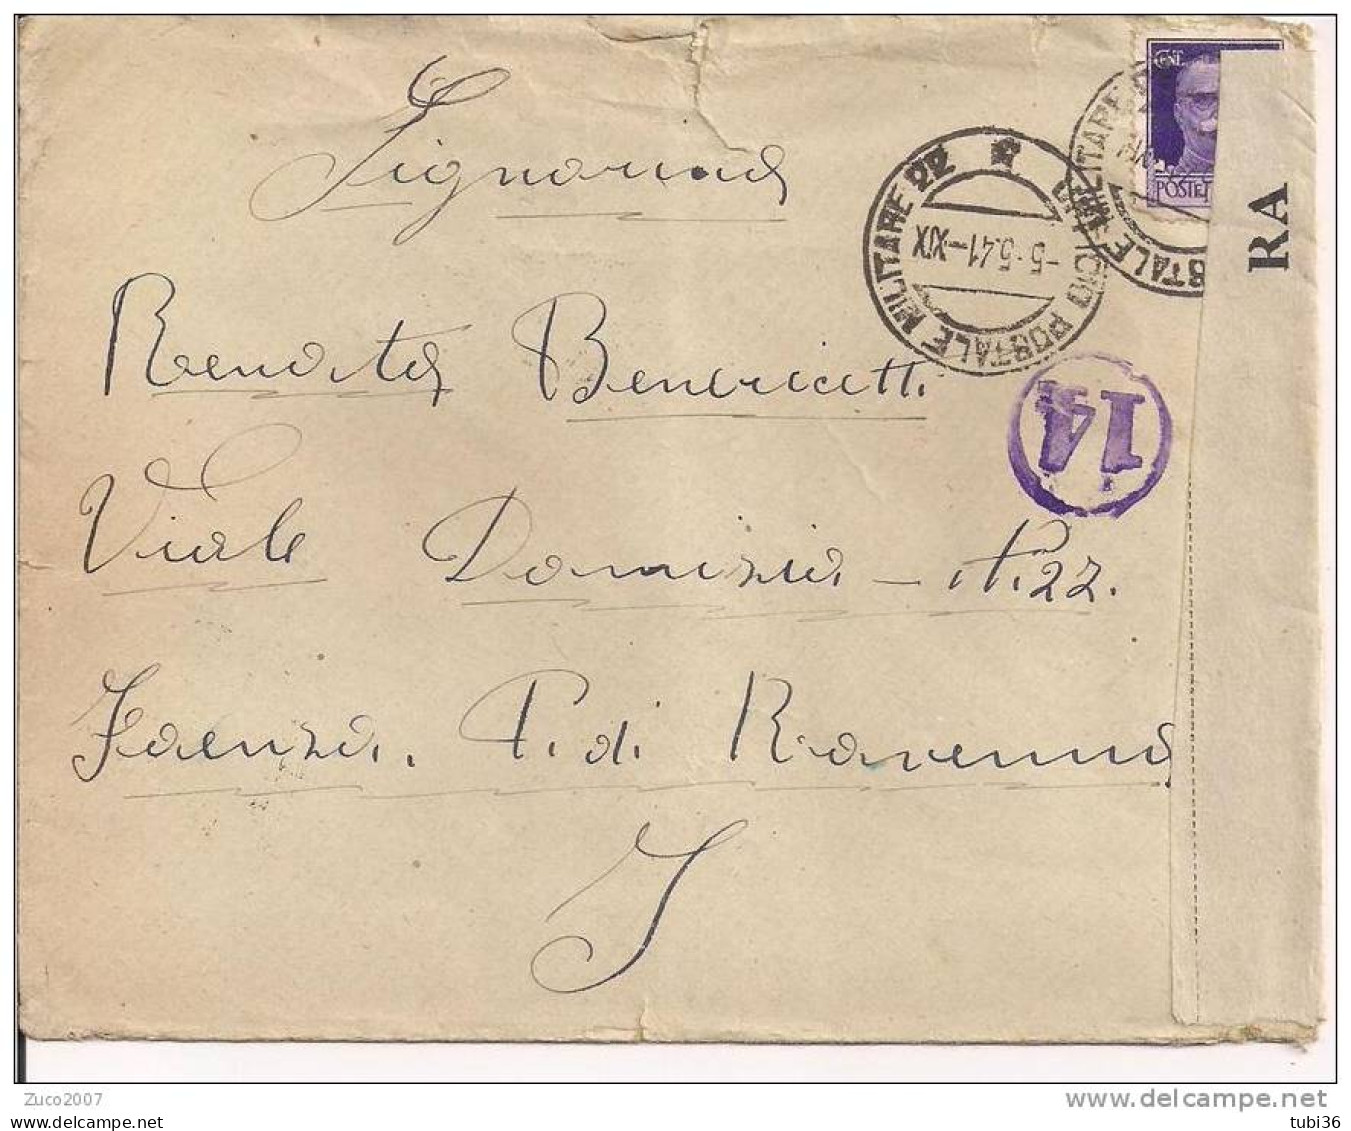 Signorina
Renata Benericetti
Viale Domizia - N. 22.
Faenza. P. di Ravenna
I
UFFICIO POSTALE MILITARE 22
-5.5.41-XIX
CENT.
POSTE
MILITARE
14
RA
Zuco2007
delcampe.net
tubi36